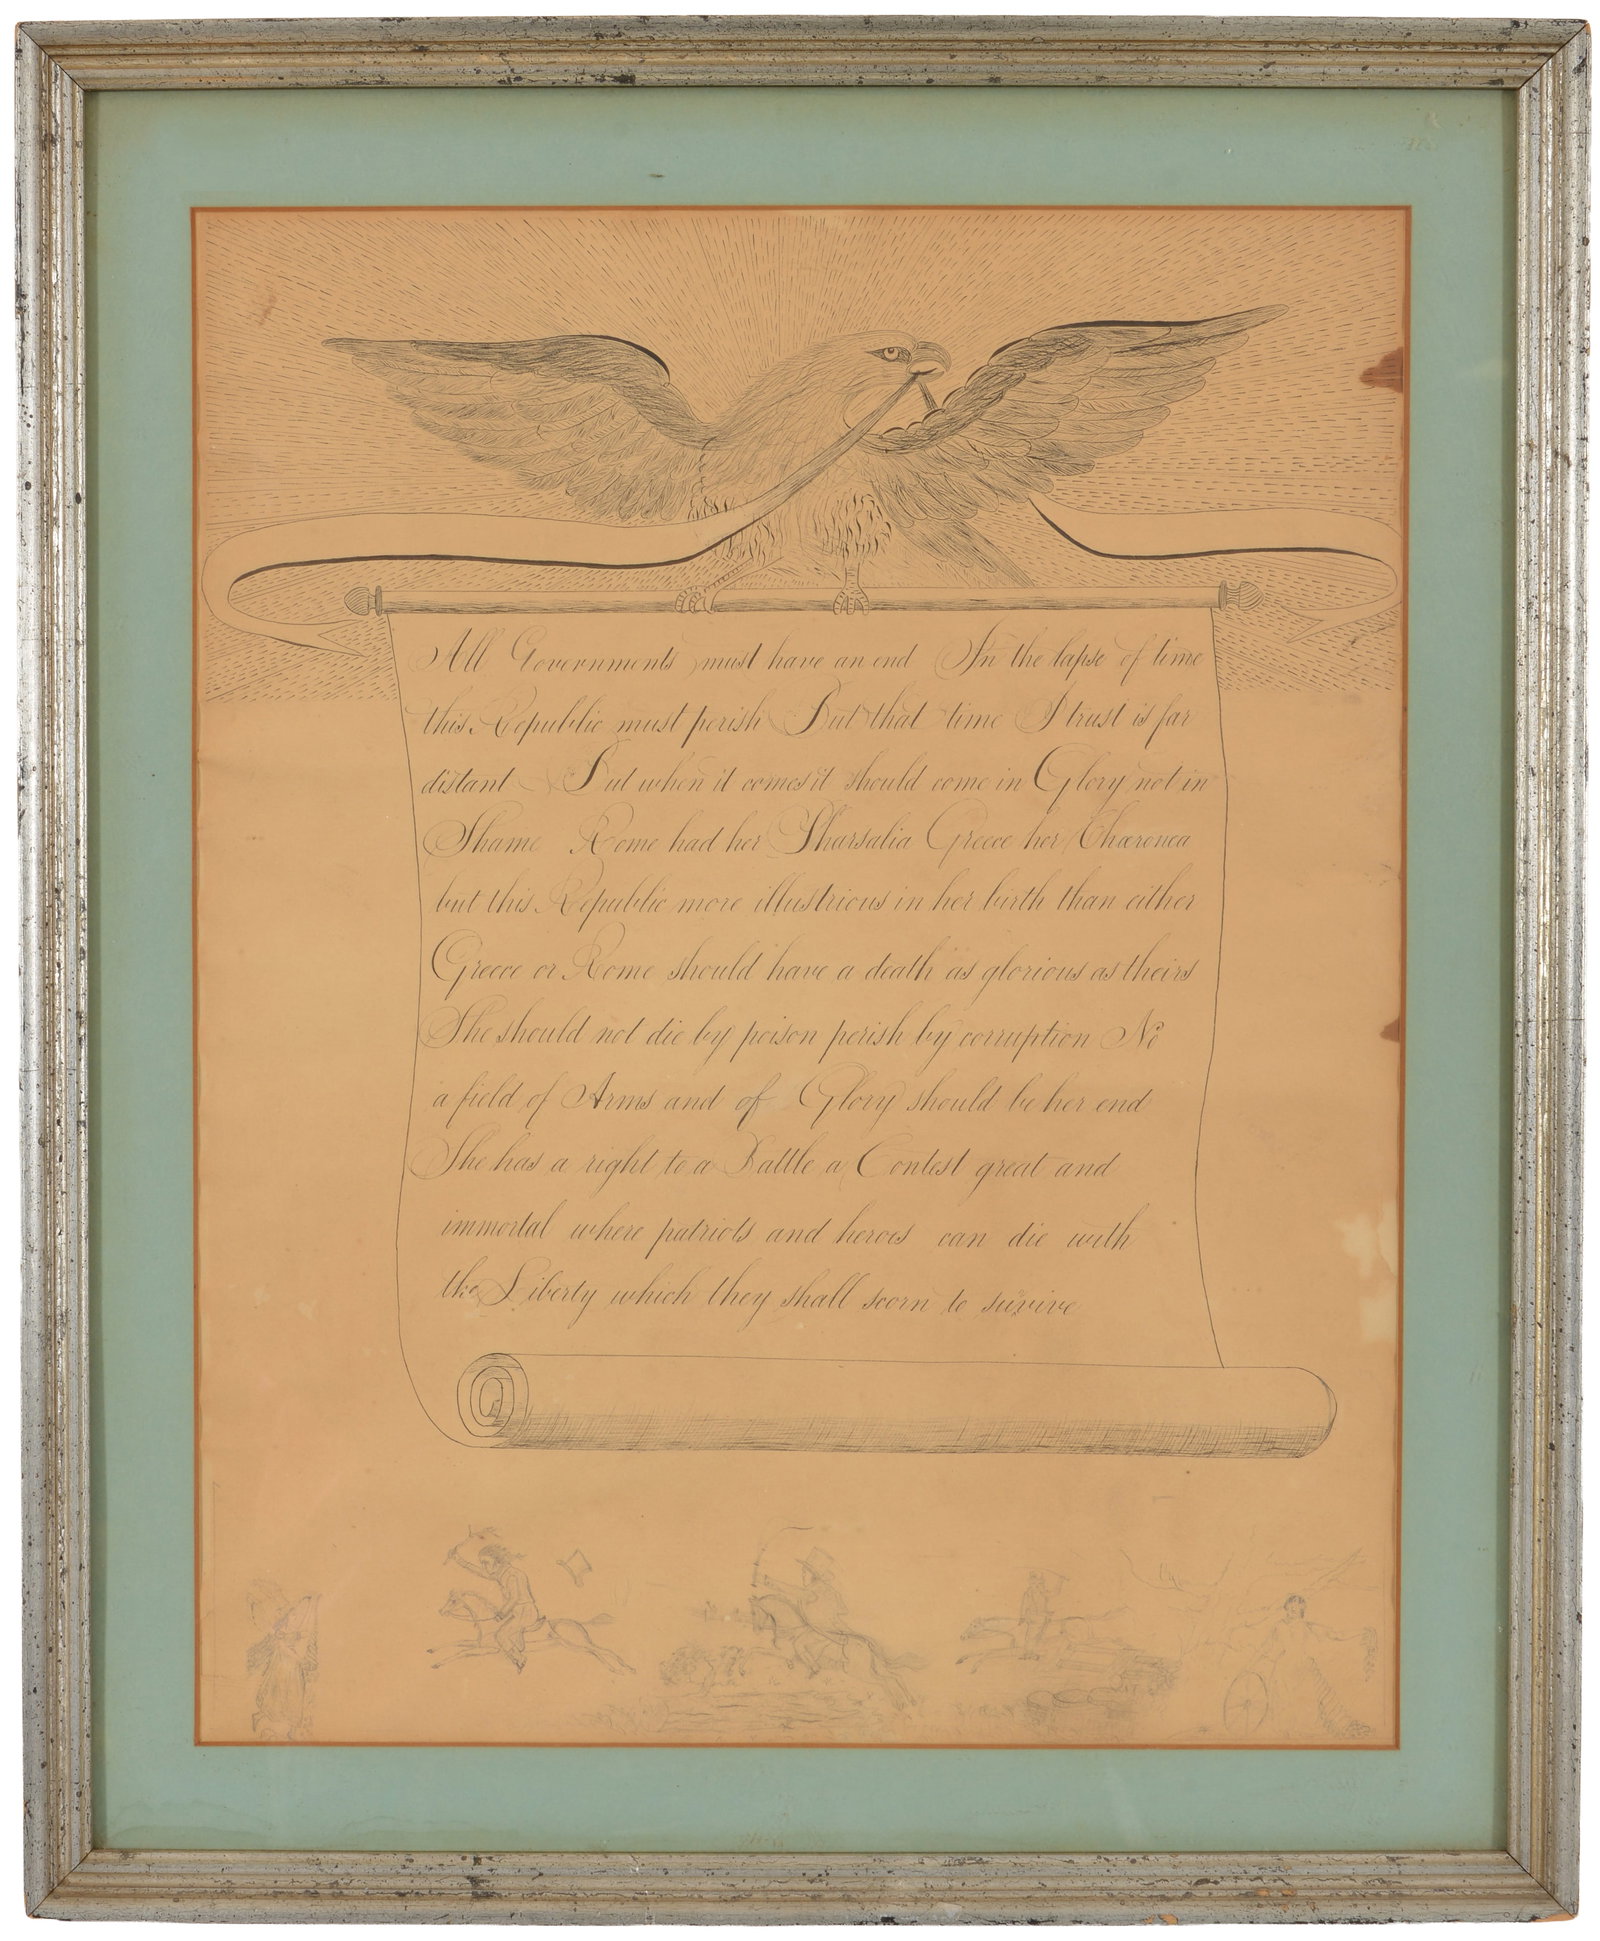 All Governments must have an end In the lapse of time
this Republic must perish But that time I trust is far
distant But when it comes it should come in Glory not in
Shame Rome had her Pharsalia Greece her Chæronea
but this Republic more illustrious in her birth than either
Greece or Rome should have a death as glorious as theirs
She should not die by poison perish by corruption No
a field of Arms and of Glory should be her end
She has a right to a Battle a Contest great and
immortal where patriots and heroes can die with
the Liberty which they shall scorn to survive